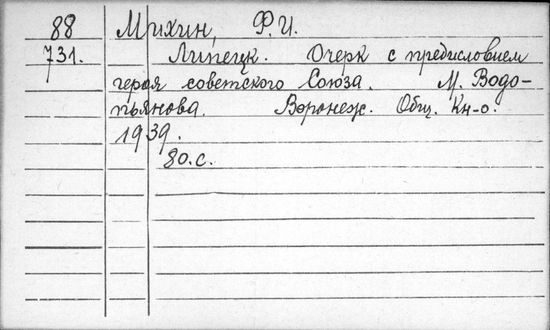 88 Михин, Ф.И.
731. Липецк. Очерк с предисловием
героя советского Союза. М. Водо-
пьянова. Воронеж. Общ. Кн-о.
1939.
80.с.